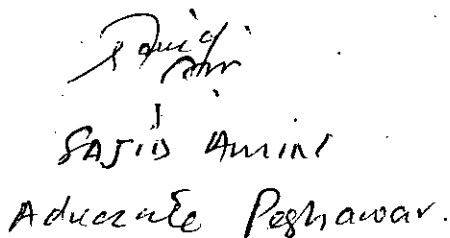 SAJID AMINI
Advocate Peshawar.